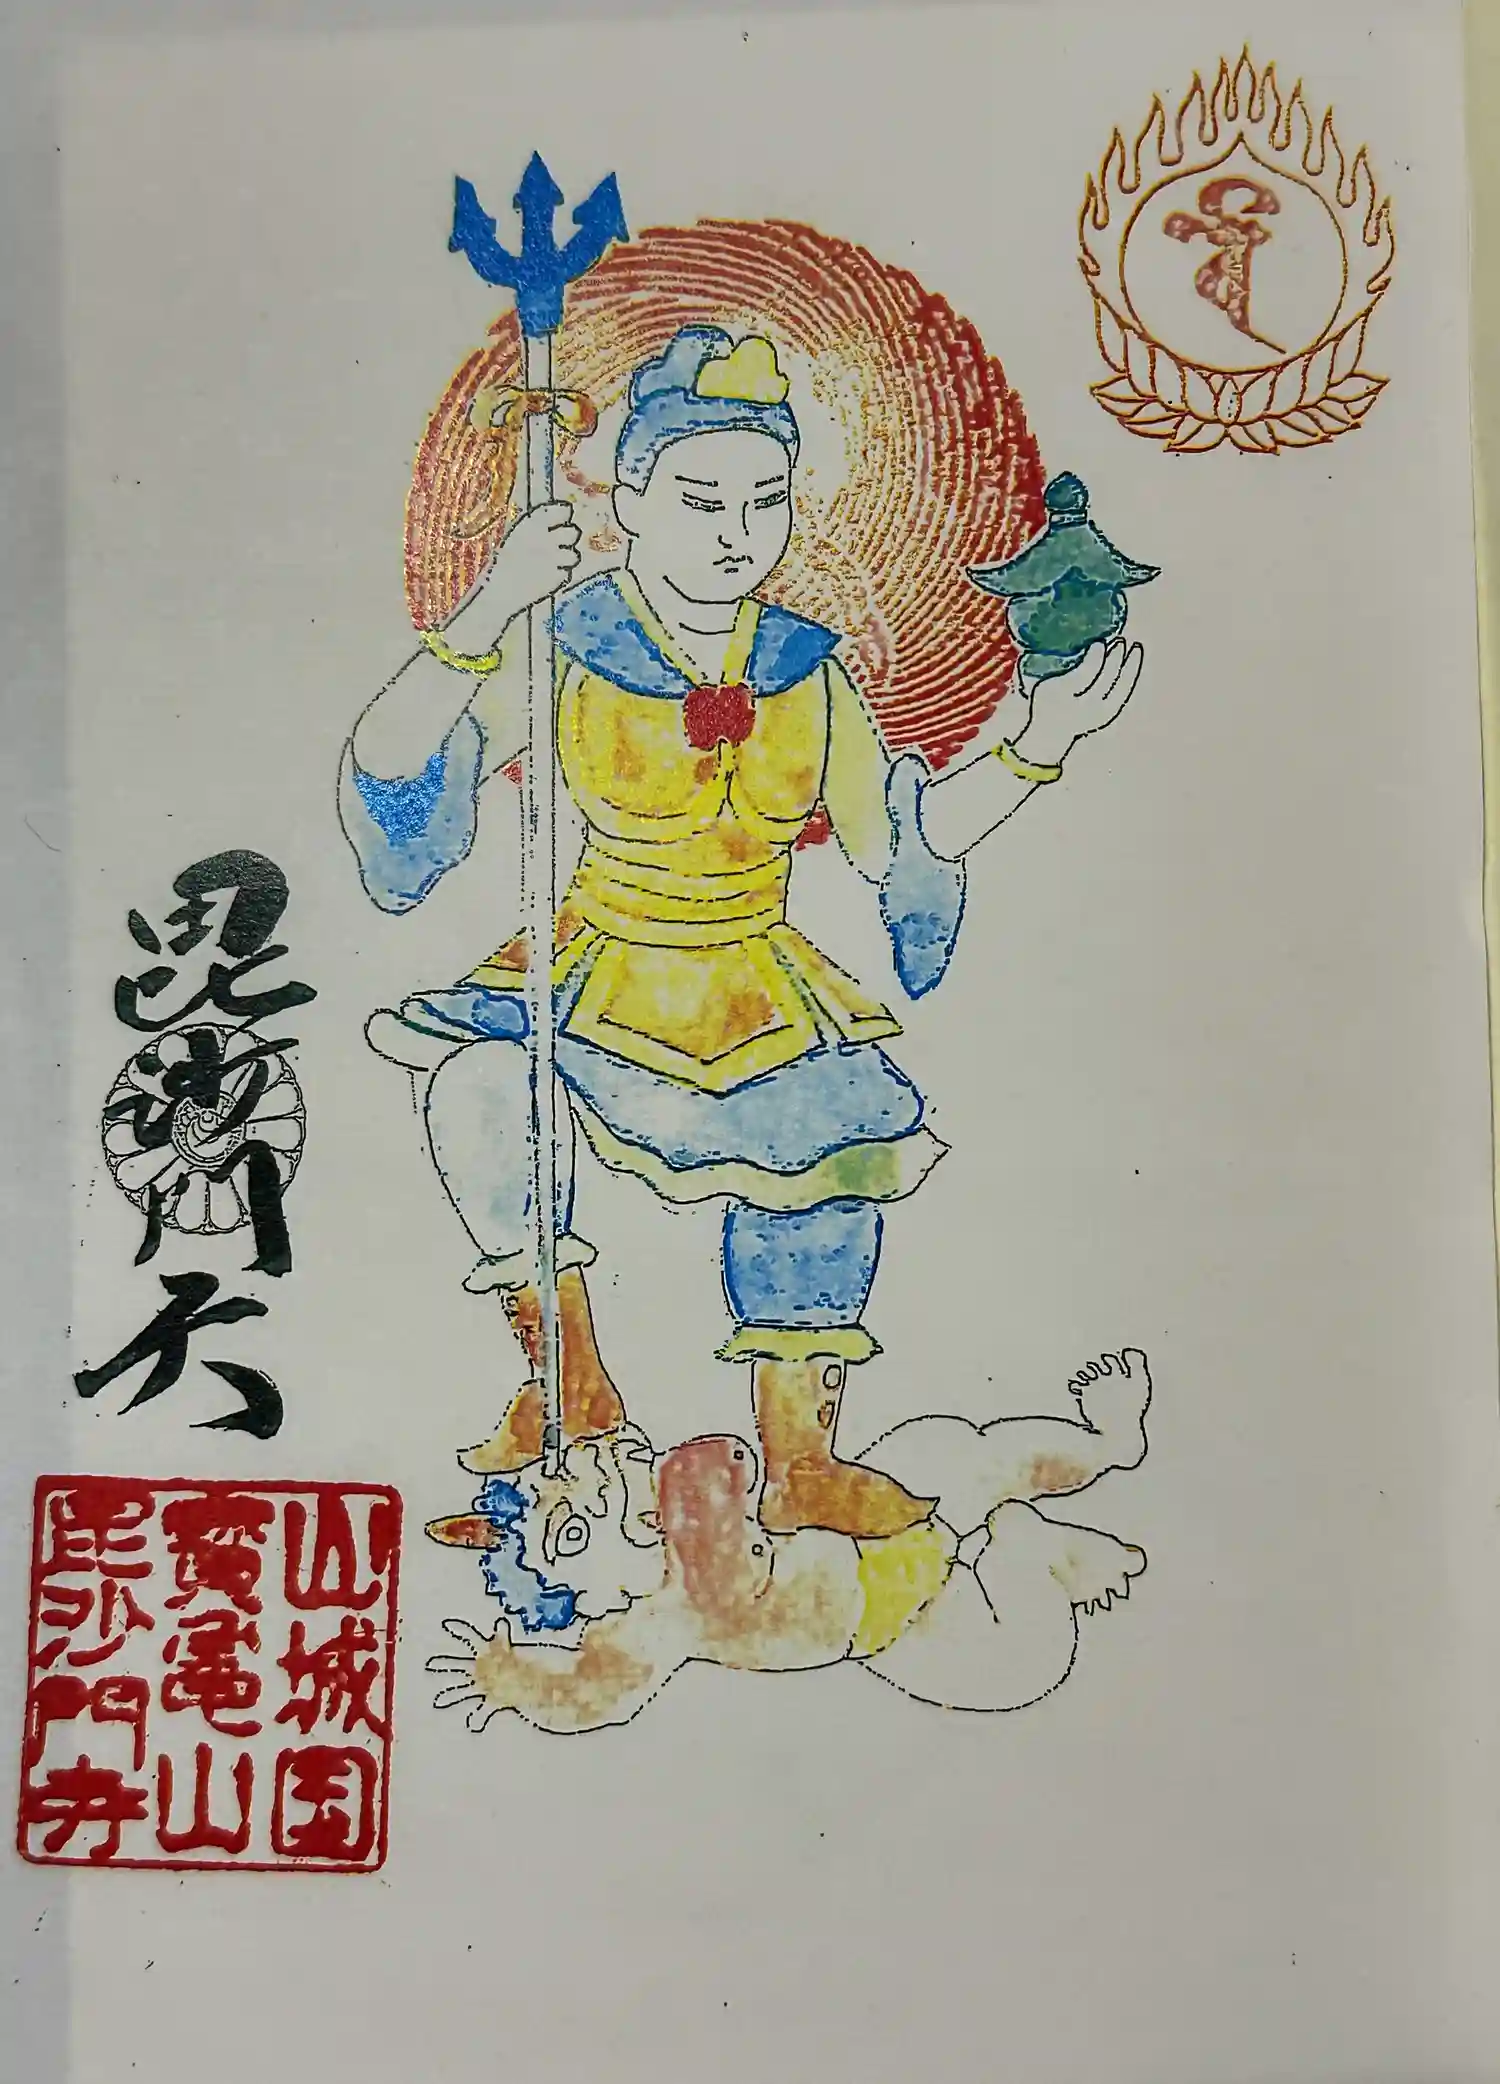 毘沙門天
山城国
寶龜山
毘沙門寺